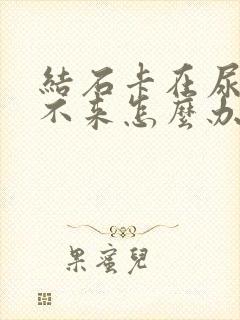 結石卡在尿
不来怎麼办
果蜜兒